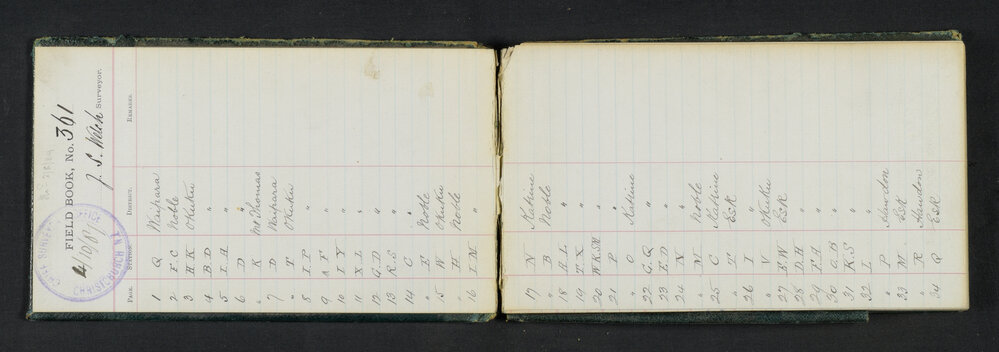 FIELD BOOK, No. 361
J. S. Welch Surveyor.
CHIEF SURVEYOR'S OFFICE
CHRISTCHURCH N.Z.
PAGE. STATION. DISTRICT. REMARKS.
1 Q Waipara
2 F.C Noble
3 H.K Okuku
4 B.D "
5 I.A "
6 D "
" K Mt Thomas
7 D Waipara
" T Okuku
8 I.P "
9 A F "
10 I Y "
11 X.L "
12 G.D "
13 R.S "
14 C "
" F Noble
15 W Okuku
" H Noble
16 I.M "
17 N Katrine
" B Noble
18 H.L "
19 T.X "
20 W.K.S.M "
21 P "
" O Katrine
22 G.Q "
23 E.D "
24 N "
" M Noble
25 C Katrine
" T Esk
26 I "
" V Okuku
27 B.W Esk
28 D.H "
29 F.A "
30 O.B "
31 K.S "
32 L "
" P Hawdon
33 M Esk
" R Hawdon
34 Q Esk